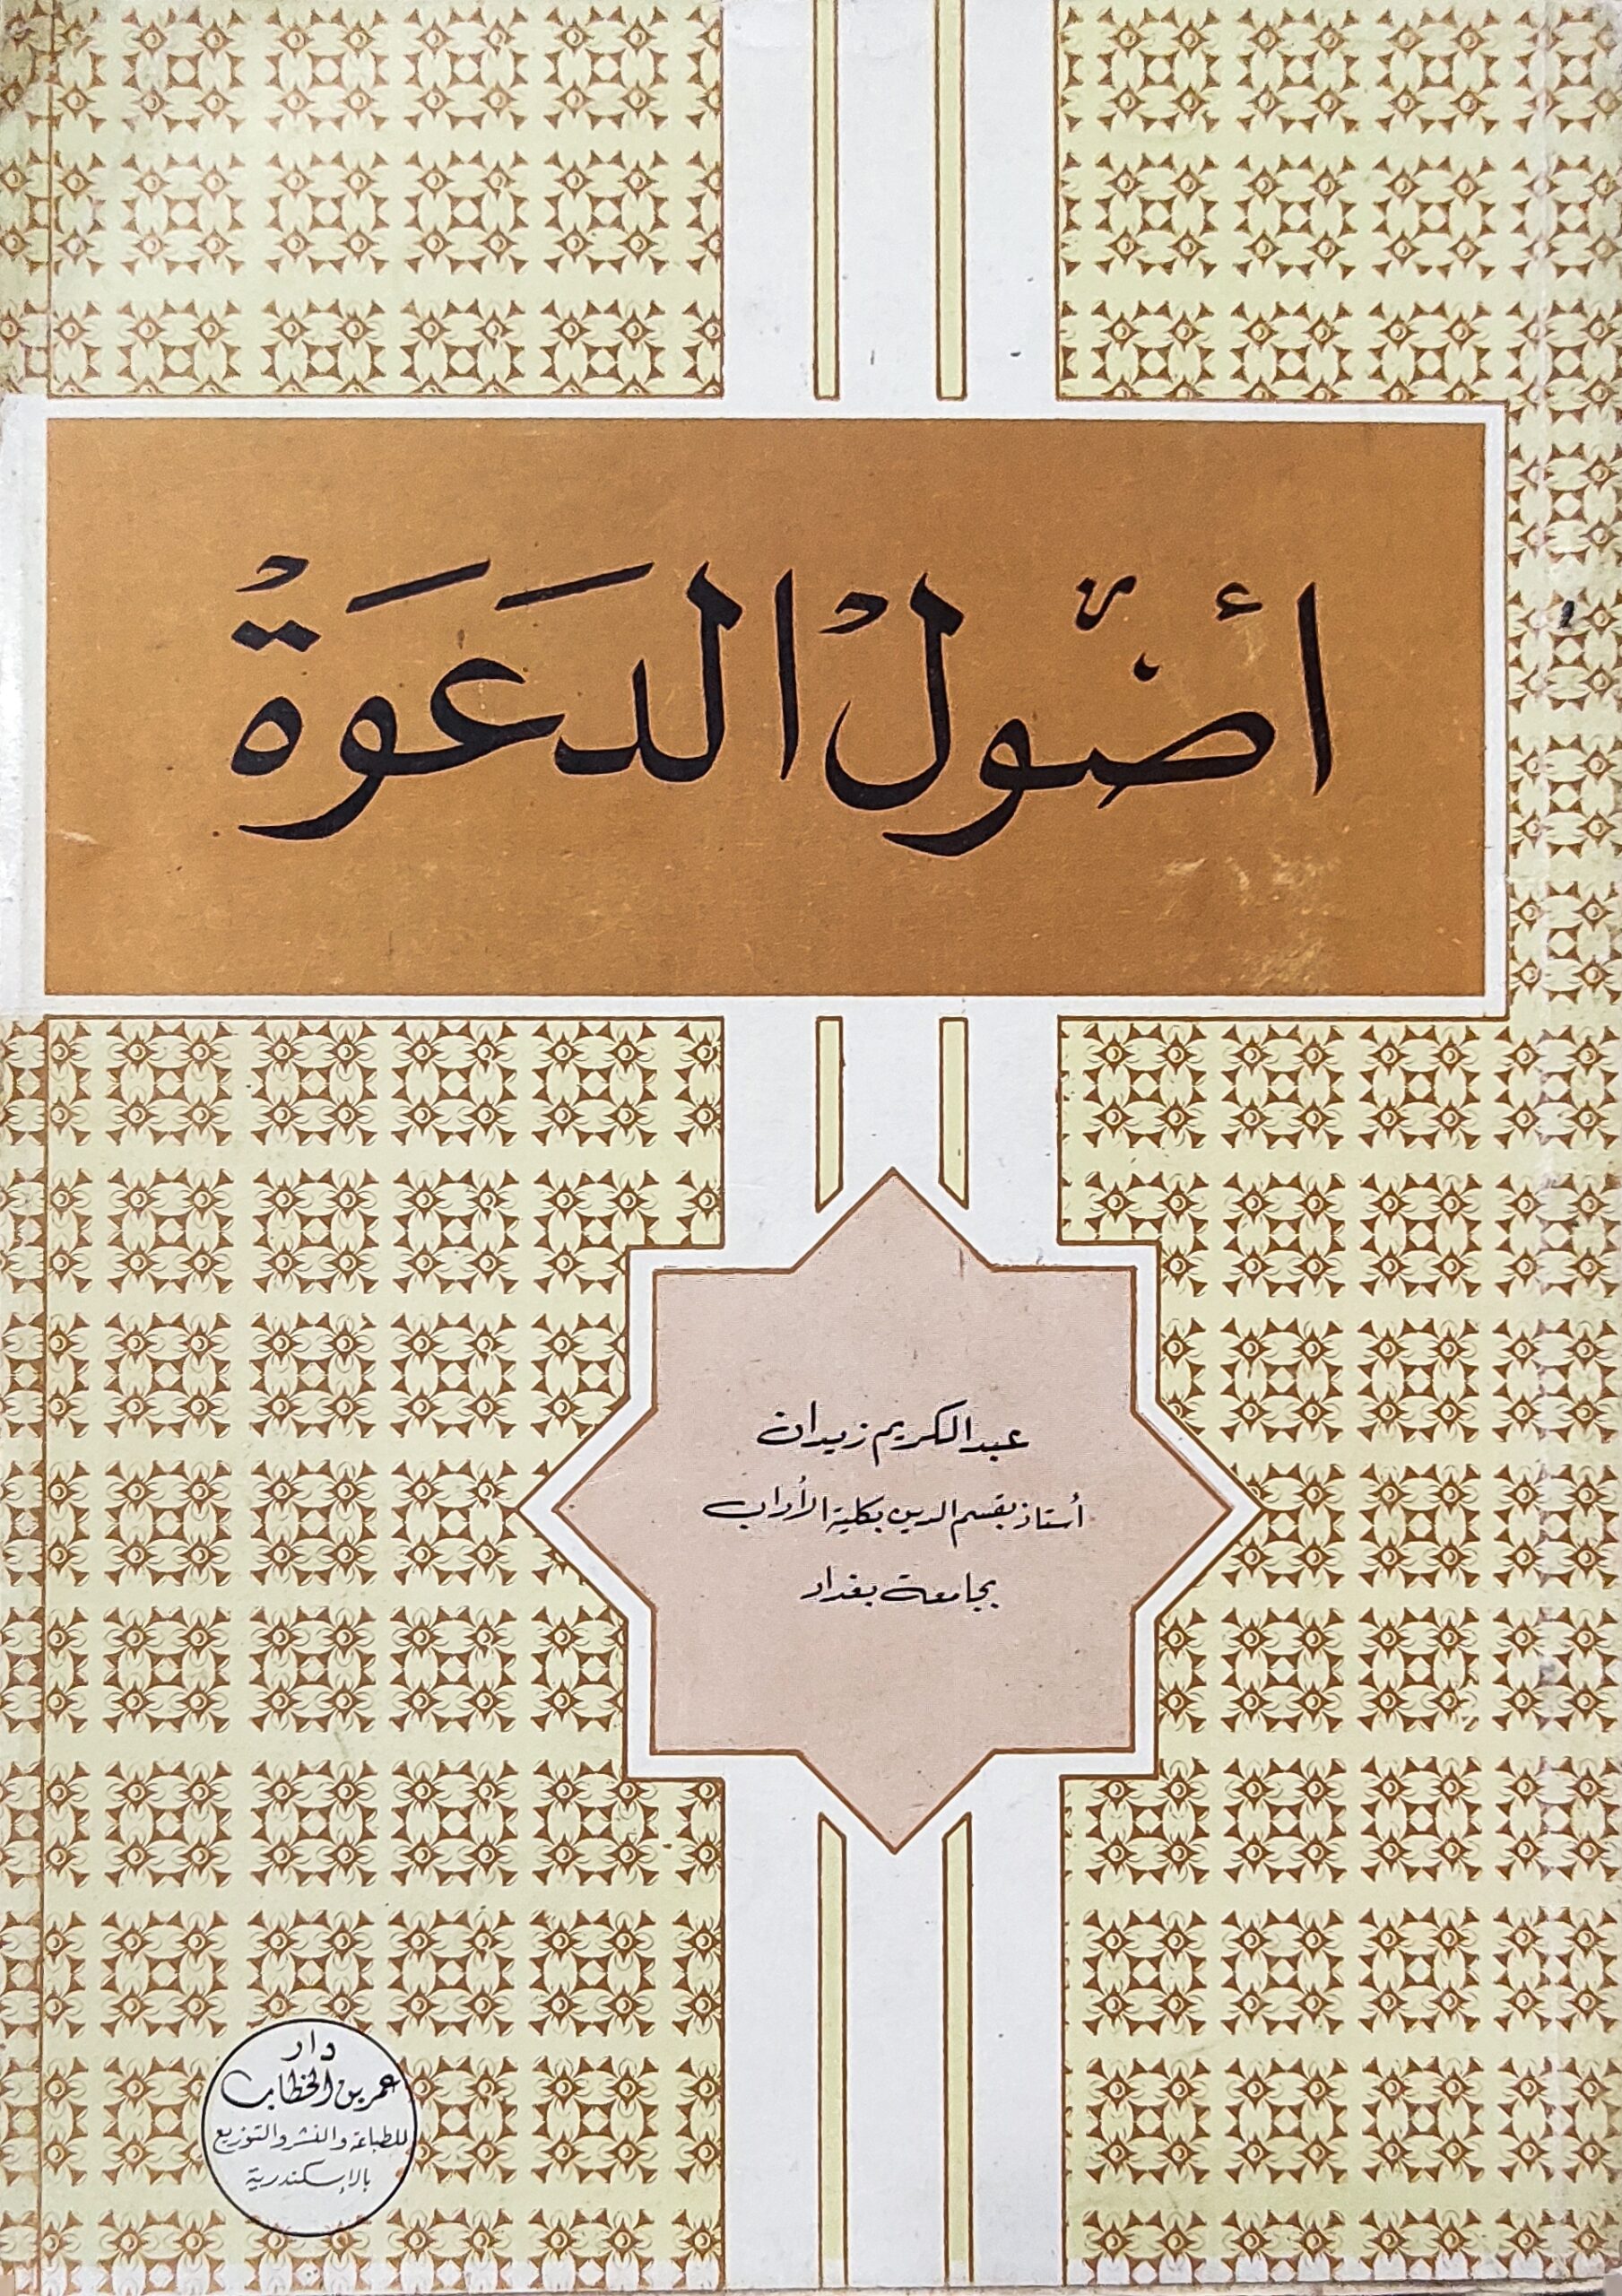 أصول الدعوة
عبد الكريم زيدان
أستاذ بقسم الدين بكلية الآداب
بجامعة بغداد
دار
عمر بن الخطاب
للطباعة والنشر والتوزيع
بالإسكندرية